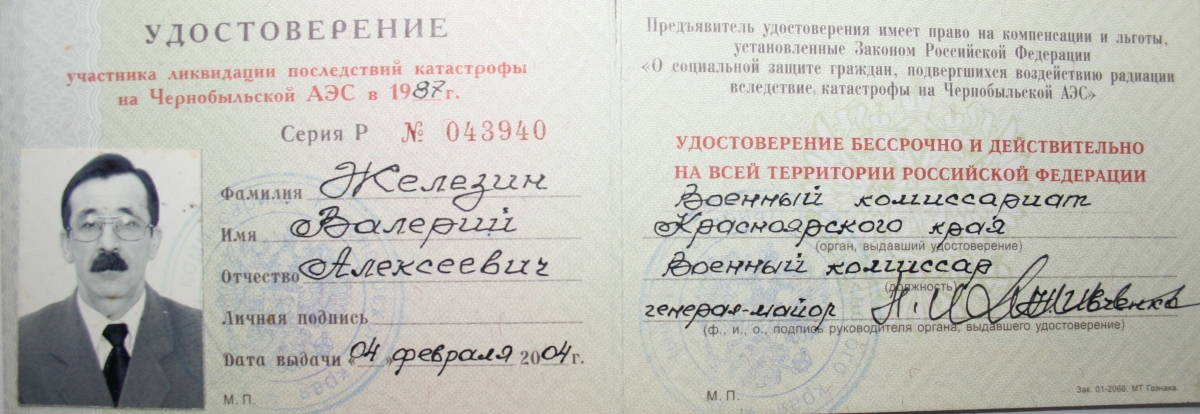 УДОСТОВЕРЕНИЕ
участника ликвидации последствий катастрофы
на Чернобыльской АЭС в 1987 г.
Серия Р № 043940
Фамилия Железин
Имя Валерий
Отчество Алексеевич
Личная подпись
Дата выдачи «04» февраля 2004 г.
М. П.
Предъявитель удостоверения имеет право на компенсации и льготы,
установленные Законом Российской Федерации
«О социальной защите граждан, подвергшихся воздействию радиации
вследствие катастрофы на Чернобыльской АЭС»
УДОСТОВЕРЕНИЕ БЕССРОЧНО И ДЕЙСТВИТЕЛЬНО
НА ВСЕЙ ТЕРРИТОРИИ РОССИЙСКОЙ ФЕДЕРАЦИИ
Военный комиссариат
Красноярского края
(орган, выдавший удостоверение)
Военный комиссар
(должность)
генерал-майор
(ф., и., о., подпись руководителя органа, выдавшего удостоверение)
М. П.
Зак. 01-2066. МТ Гознака.